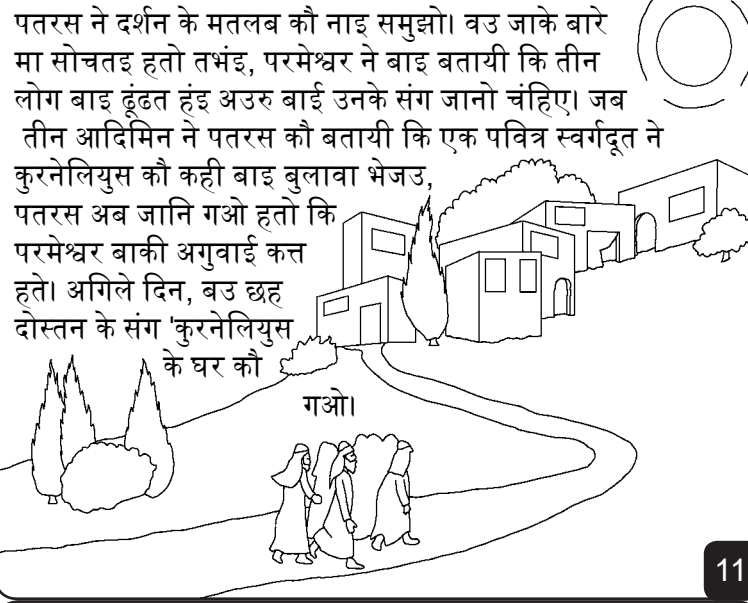 पतरस ने दर्शन के मतलब कौ नाइ समुझो। वउ जाके बारे
मा सोचतइ हतो तभंइ, परमेश्वर ने बाइ बतायी कि तीन
लोग बाइ ढूंढत हंइ अउरु बाई उनके संग जानो चंहिए। जब
तीन आदिमिन ने पतरस कौ बतायी कि एक पवित्र स्वर्गदूत ने
कुरनेलियुस कौ कही बाइ बुलावा भेजउ,
पतरस अब जानि गओ हतो कि
परमेश्वर बाकी अगुवाई कत्त
हते। अगिले दिन, बउ छह
दोस्तन के संग 'कुरनेलियुस
के घर कौ
गओ।
11